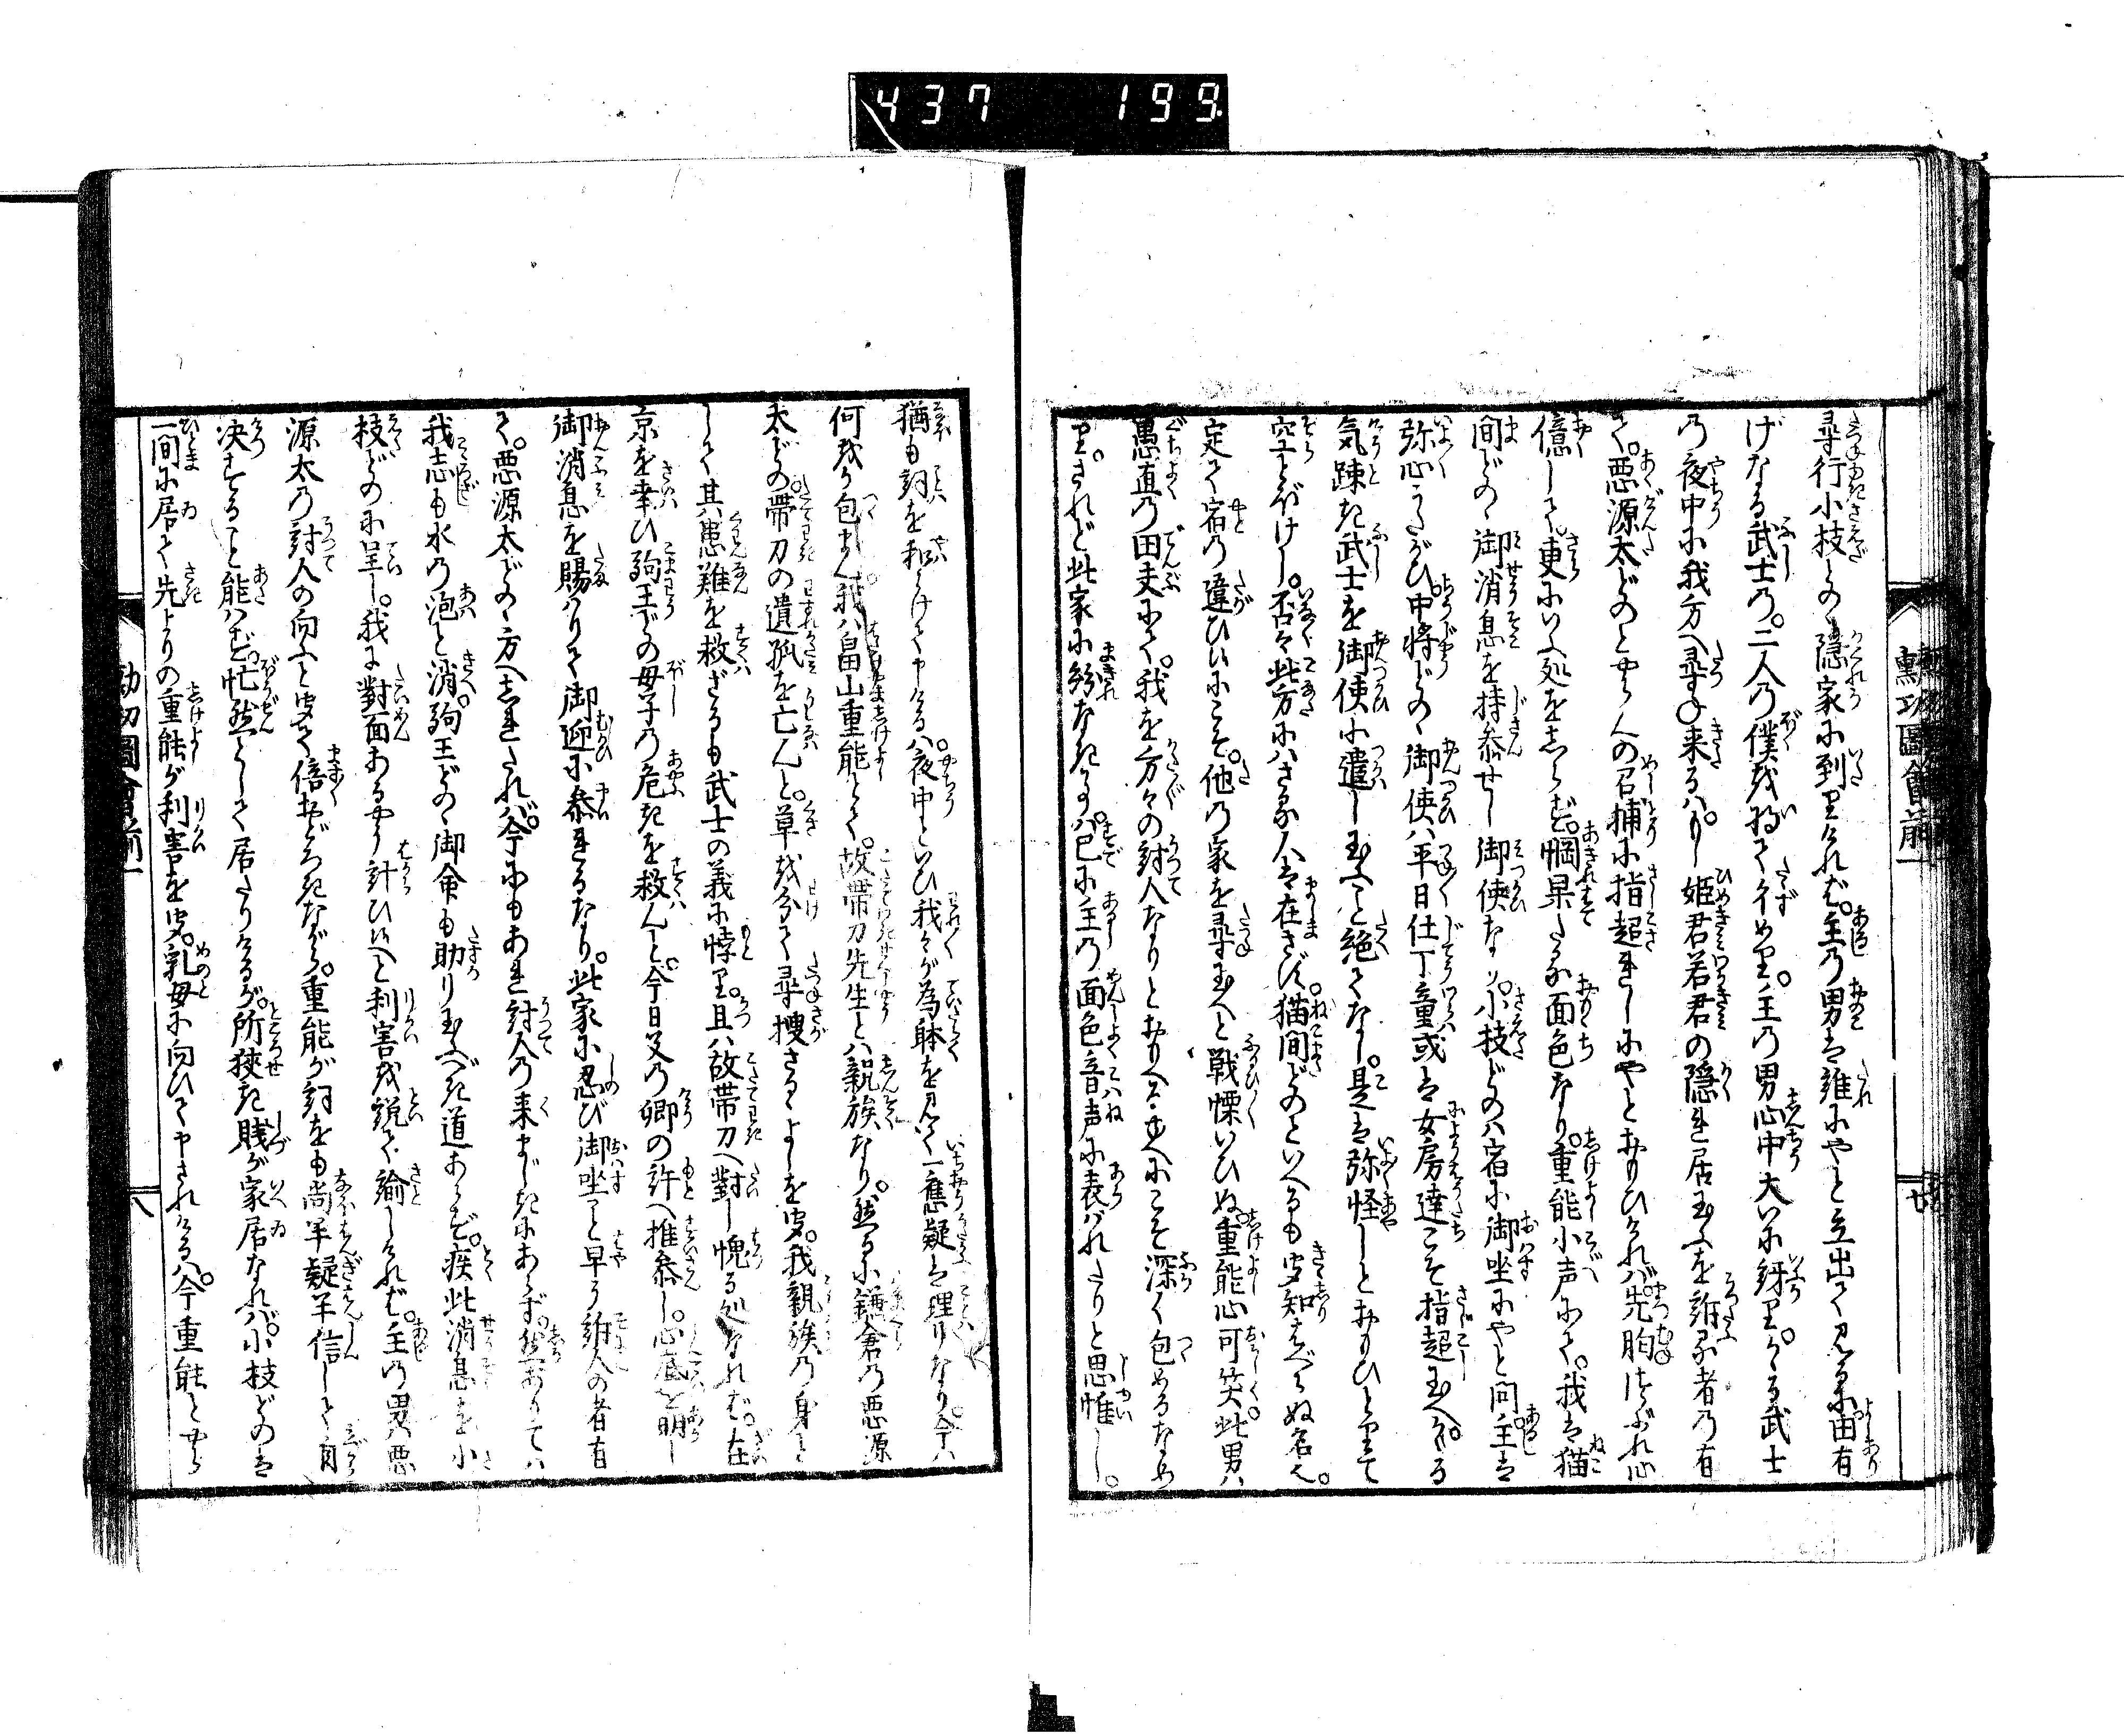 437 199.
尋行小枝どのゝ隠家に到りければ。主の男は誰にやと立出て見るに由有
げなる武士の。二人の僕を将てイめり。主の男心中大いに訝り。かゝる武士
の夜中に我方へ尋ね来るは。もし姫君若君の隠れ居玉ふを訴る者の有
て。悪源太どのとやらんの召捕に指越れしにやとおもひければ先胸はつぶれ心
億して。更にいふ処をしらず。惘果たる面色なり。重能小声にて。我は猫
間どのゝ御消息を持参せし御使なり。小枝どのゝ宿に御坐にやと問。主は
弥心うたがひ。中将どのゝ御使ハ平日仕丁童或は女房達こそ指越玉へ。かゝる
気疎き武士を御使に遣し玉ふこと絶てなし。是は弥怪しとおもひとりて
空とぼけし。否々此方にハさる人は在さず。猫間どのといへるも聞知はべらぬ名也。
定て宿の違ひにこそ。他の家を尋玉へと戦慄いひぬ。重能心可笑。此男ハ
愚直の田夫にて。我を方々の討人なりとおもへるゆゑにこそ深く包めるなめ
り。されど此家に紛なきゆゑ。巳に主の面色音声に表ハれたりと思惟し。
猶も詞を和らげて申けるハ。夜中といひ我々が為躰を見て一應疑は理りなり。今ハ
何をか包まん。我ハ畠山重能とて。故帯刀先生とハ親族なり。然るに鎌倉の悪源
太どの。帯刀の遺孤を亡んと。草を分て尋捜さるゝよしを聞。我親族の身と
して其患難を救ざるも武士の義に悖り。且ハ故帯刀へ對し愧る処なれば。在
京を幸ひ駒王どの母子の危きを救んと。今日父の卿の許へ推参し。心底を明し
御消息を賜ハりて御迎に参れるなり。此家に忍び御坐こと早う訴人の者有
て。悪源太どのゝ方へしれたれバ。今にもあれ討人の来まじきにあらず。然ありてハ
我志も水の泡と消駒王どのゝ御命も助り玉ふべき道あらず。疾此消息を小
枝どのに呈し。我に對面あるやう計ひ候へと利害を説て諭しければ。主の男ハ悪
源太の討人の向ふと聞て倍おどろきながら。重能が詞をも尚半疑半信して自
决することと能ハず。忙然として居たりけるが。所狭き賎が家居なれバ。小枝どのは
一間に居て先よりの重能が利害を聞。乳母に向ひて申されけるハ。今重能とやら